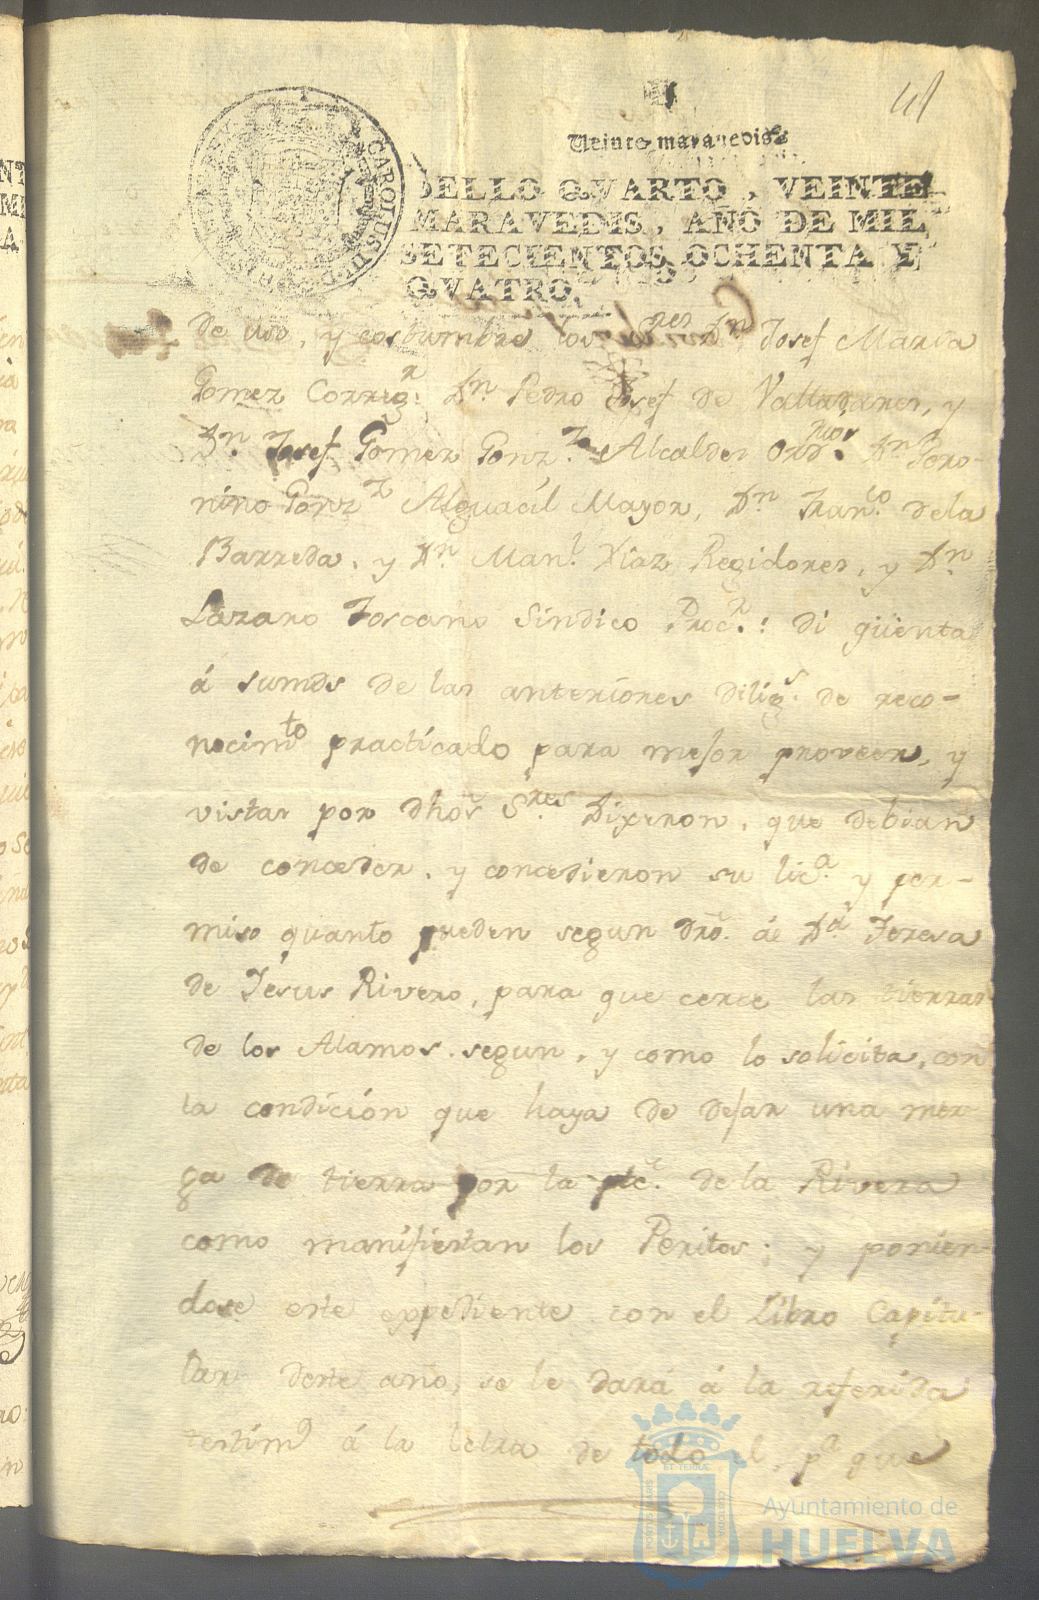 41
Veinte maravedis
SELLO QVARTO, VEINTE
MARAVEDIS, AÑO DE MIL
SETECIENTOS OCHENTA Y
QVATRO.
CAROLUS
de uso, y costumbre los Sres Dn Josef Maria
Gomez Corregr. Dn Pedro Josef de Valladares, y
Dn Josef Gomez Gonz.z Alcaldes Ordrios. Dn Gero-
nimo Gonzz Alguacil Mayor, Dn Franco de la
Barreda, y Dn Manl Diaz Regidores, y Dn
Lazaro Toscano Sindico Procr.: di qüenta
á sumds de las anteriores diligs. de reco-
nocimto practicado para mejor proveer, y
vistas por dhos Sres Dixeron, que debian
de conceder, y concedieron su lica. y per-
miso quanto pueden segun dro. á Da Teresa
de Jesus Rivero, para que cerce las tierras
de los Alamos, segun, y como lo solicita, con
la condición que haya de dejar una mer-
ga de tierra por la pte. de la Rivera
como manifiestan los Peritos; y ponien-
dose este expediente con el Libro Capitu-
lar deste año, se le dará á la referida
testimo á la letra de todo el, pa que
Ayuntamiento de
HUELVA